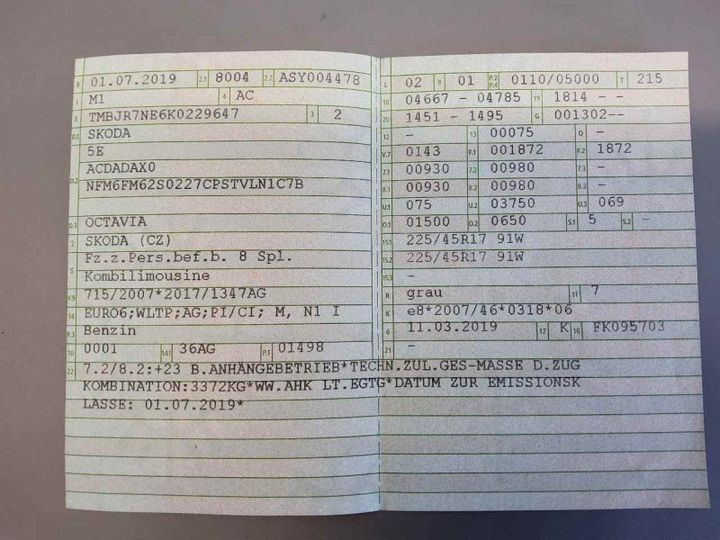 B 01.07.2019 2.1 8004 2.2 ASY004478
J M1 4 AC
E TMBJR7NE6K0229647 3 2
D.1 SKODA
5E
D.2 ACDADAX0
NFM6FM62S0227CPSTVLN1C7B
D.3 OCTAVIA
2 SKODA (CZ)
5 Fz.z.Pers.bef.b. 8 Spl.
Kombilimousine
V.9 715/2007*2017/1347AG
14 EURO6;WLTP;AG;PI/CI; M, N1 I
P.3 Benzin
10 0001 14.1 36AG P.1 01498
L 02 9 01 P.2 P.4 0110/05000 T 215
18 04667 - 04785 19 1814 - -
20 1451 - 1495 G 001302--
12 - 13 00075 Q -
V.7 0143 F.1 001872 F.2 1872
7.1 00930 7.2 00980 7.3 -
8.1 00930 8.2 00980 8.3 -
U.1 075 U.2 03750 U.3 069
O.1 01500 O.2 0650 S.1 5 S.2 -
15.1 225/45R17 91W
15.2 225/45R17 91W
15.3 -
R grau 11 7
K e8*2007/46*0318*06
6 11.03.2019 17 K 16 FK095703
21 -
22 7.2/8.2:+23 B.ANHÄNGEBETRIEB*TECHN.ZUL.GES-MASSE D.ZUG
KOMBINATION:3372KG*WW.AHK LT.EGTG*DATUM ZUR EMISSIONSK
LASSE: 01.07.2019*